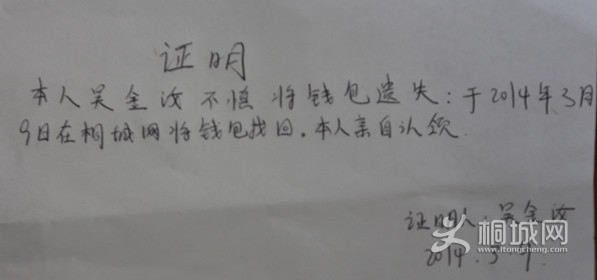 证明
本人吴金汝不慎将钱包遗失:于2014年3月
9日在桐城网将钱包找回.本人亲自认领.
证明人:吴金汝
2014.3.9.
桐城网
itongcheng.com